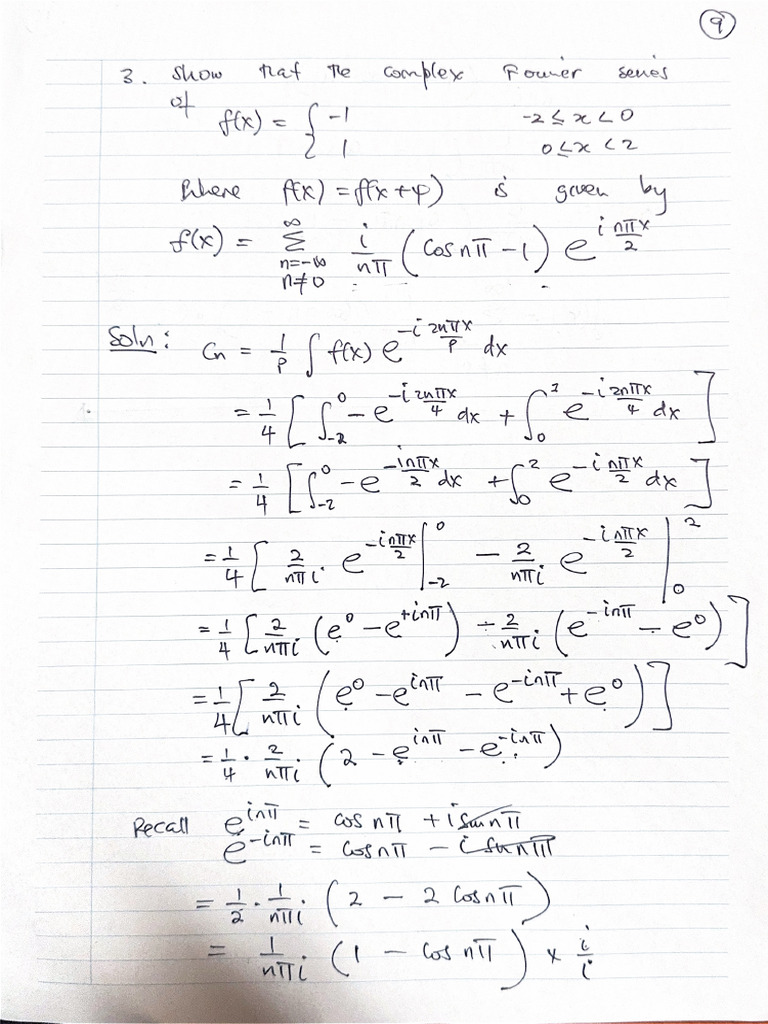 9
3. Show that the complex Fourier series
of f(x) = { -1 -2 ≤ x < 0
1 0 ≤ x < 2
Where f(x) = f(x + 4) is given by
f(x) = ∞ Σ n=-∞ n≠0 i/nπ (cos nπ - 1) e^{i nπx/2}
Soln: Cn = 1/P ∫ f(x) e^{-i 2nπx/P} dx
= 1/4 [ ∫_{-2}^{0} -e^{-i 2nπx/4} dx + ∫_{0}^{2} e^{-i 2nπx/4} dx ]
= 1/4 [ ∫_{-2}^{0} -e^{-inπx/2} dx + ∫_{0}^{2} e^{-i nπx/2} dx ]
= 1/4 [ 2/nπi . e^{-inπx/2} |_{-2}^{0} - 2/nπi e^{-inπx/2} |_{0}^{2}
= 1/4 [ 2/nπi (e^0 - e^{+inπ}) - 2/nπi (e^{-inπ} - e^0) ]
= 1/4 [ 2/nπi (e^0 - e^{inπ} - e^{-inπ} + e^0) ]
= 1/4 . 2/nπi . (2 - e^{inπ} - e^{-inπ})
Recall e^{inπ} = cos nπ + i sin nπ
e^{-inπ} = cos nπ - i sin nπ
= 1/2 . 1/nπi . (2 - 2 cos nπ)
= 1/nπi . (1 - cos nπ) x i/i